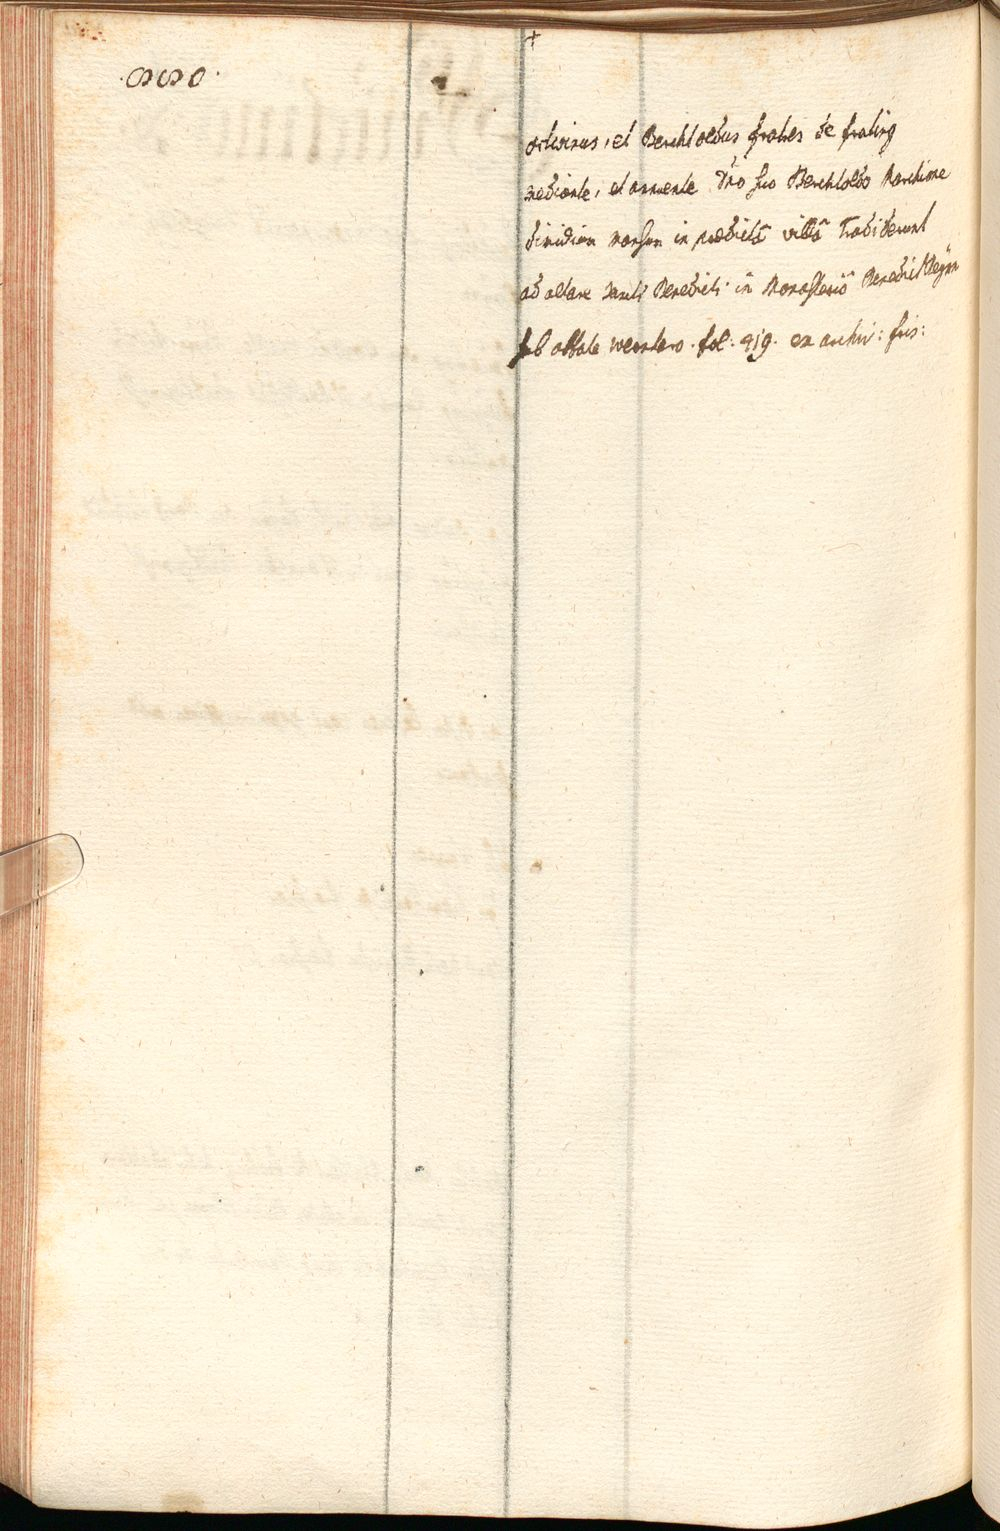 +
ortwinus, et Berchtoldus fratres de fraling
mediante, et annuente Dño suo Berchtoldo Marchione
dimidium mansum in prædictâ villâ Tradiderunt
ad altare sancti Benedicti in Monasteriô
sub abbate weszlero. fol. 919. ex archiv: fris: